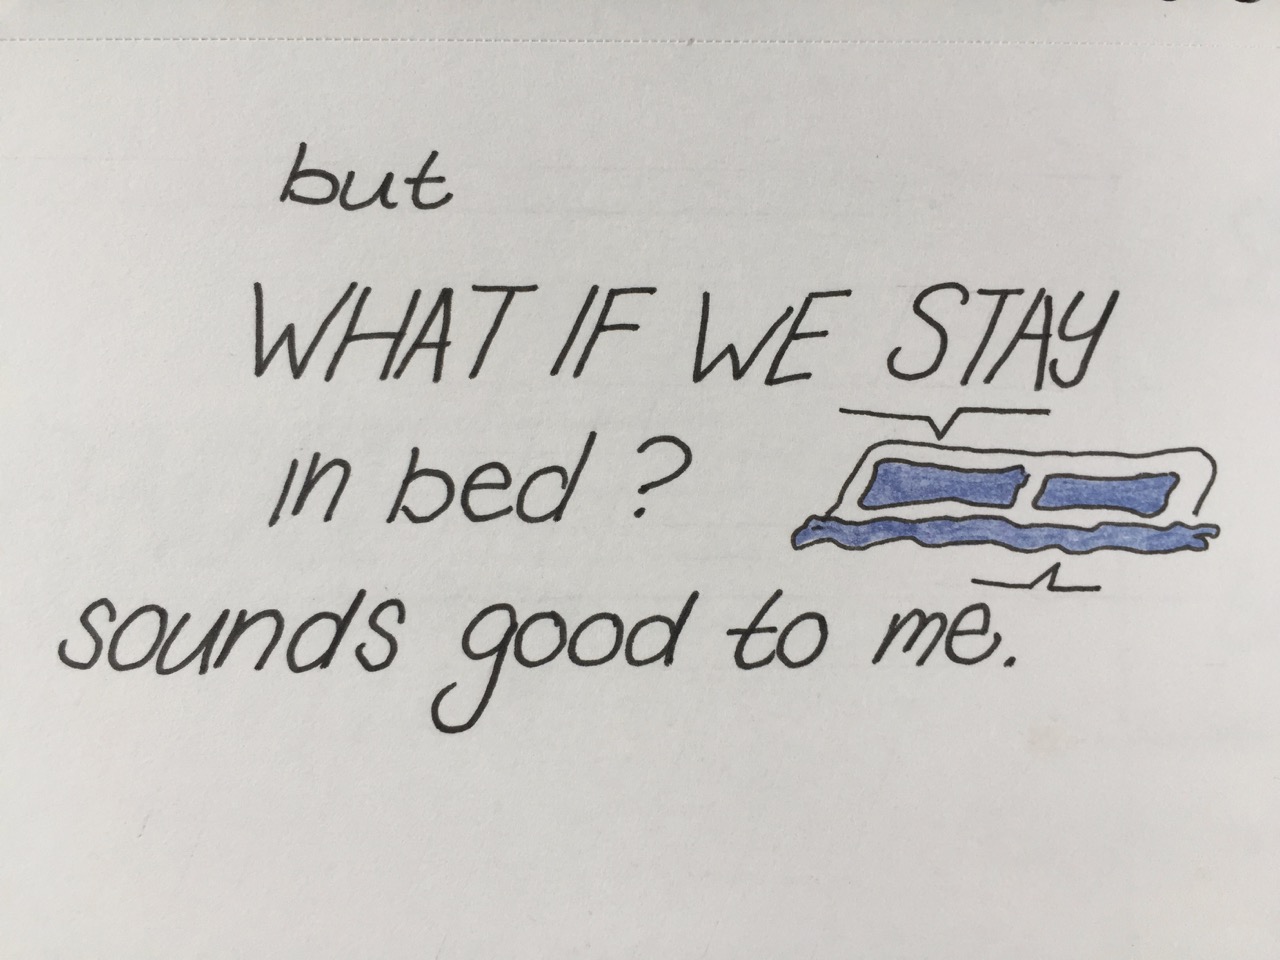 but
WHAT IF WE STAY
in bed ?
sounds good to me.